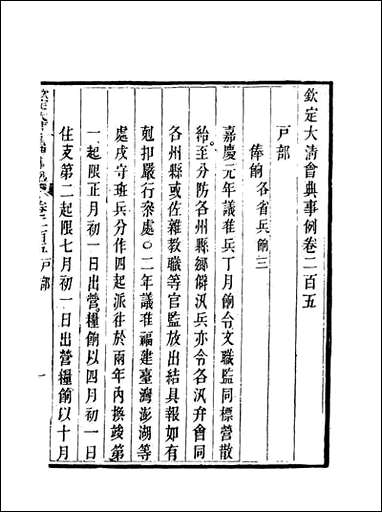 欽定大清會典事例卷二百五
戸部
俸餉各省兵餉三
嘉慶元年議准兵丁月餉令文職監同標營散
給至分防各州縣鄉僻汛兵亦令各汛弁會同
各州縣或佐雜教職等官監放出結具報如有
剋扣嚴行叅處〇二年議准福建臺灣澎湖等
處戍守班兵分作四起派往於兩年內換竣第
一起限正月初一日出營糧餉以四月初一日
住支第二起限七月初一日出營糧餉以十月
卷二百五戸部
一